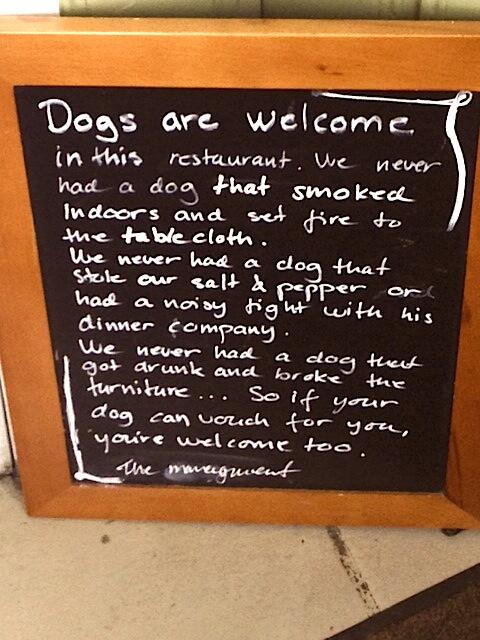 Dogs are welcome
in this restaurant. We never
had a dog that smoked
Indoors and set fire to
the tablecloth.
We never had a dog that
stole our salt & pepper or
had a noisy fight with his
dinner company.
We never had a dog that
got drunk and broke the
furniture... So if your
dog can vouch for you,
you're welcome too.
The managment